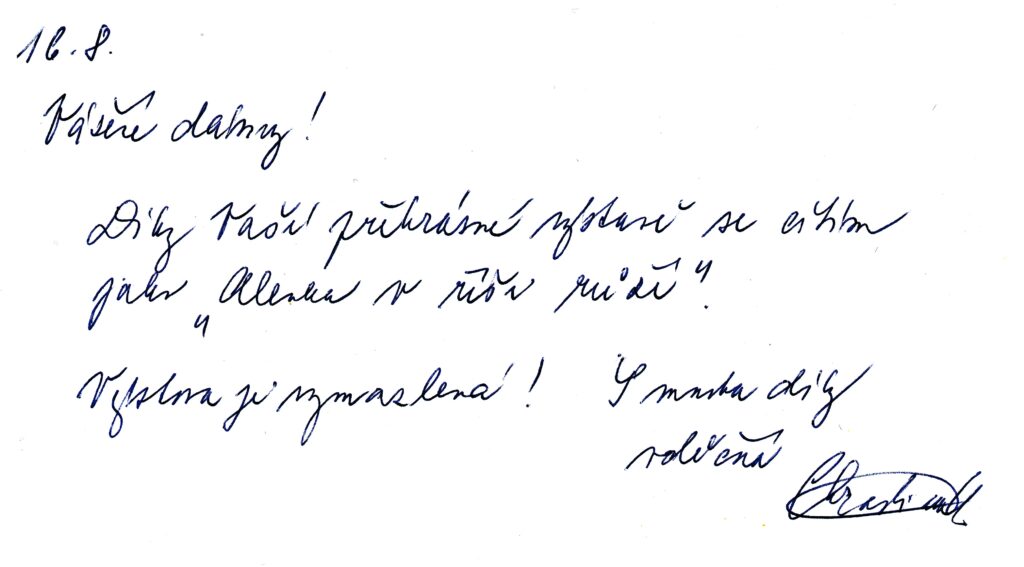 16. 8.
Vážené dámy!
Díky Vaší překrásné výstavě se cítím
jako „Alenka v říši růží".
Výstava je vymazlená! S mnoha díky
vděčná